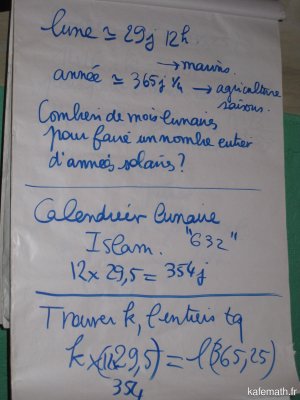 lune ≃ 29j 12h.
→ marins.
année ≃ 365j 1/4 → agriculture
saisons.
Combien de mois lunaires
pour faire un nombre entier
d'années solaires?
Calendrier lunaire
Islam. "632"
12 x 29,5 = 354j
Trouver k, l entiers tq
k x (12x29,5) = l(365,25)
354
kafemath.fr